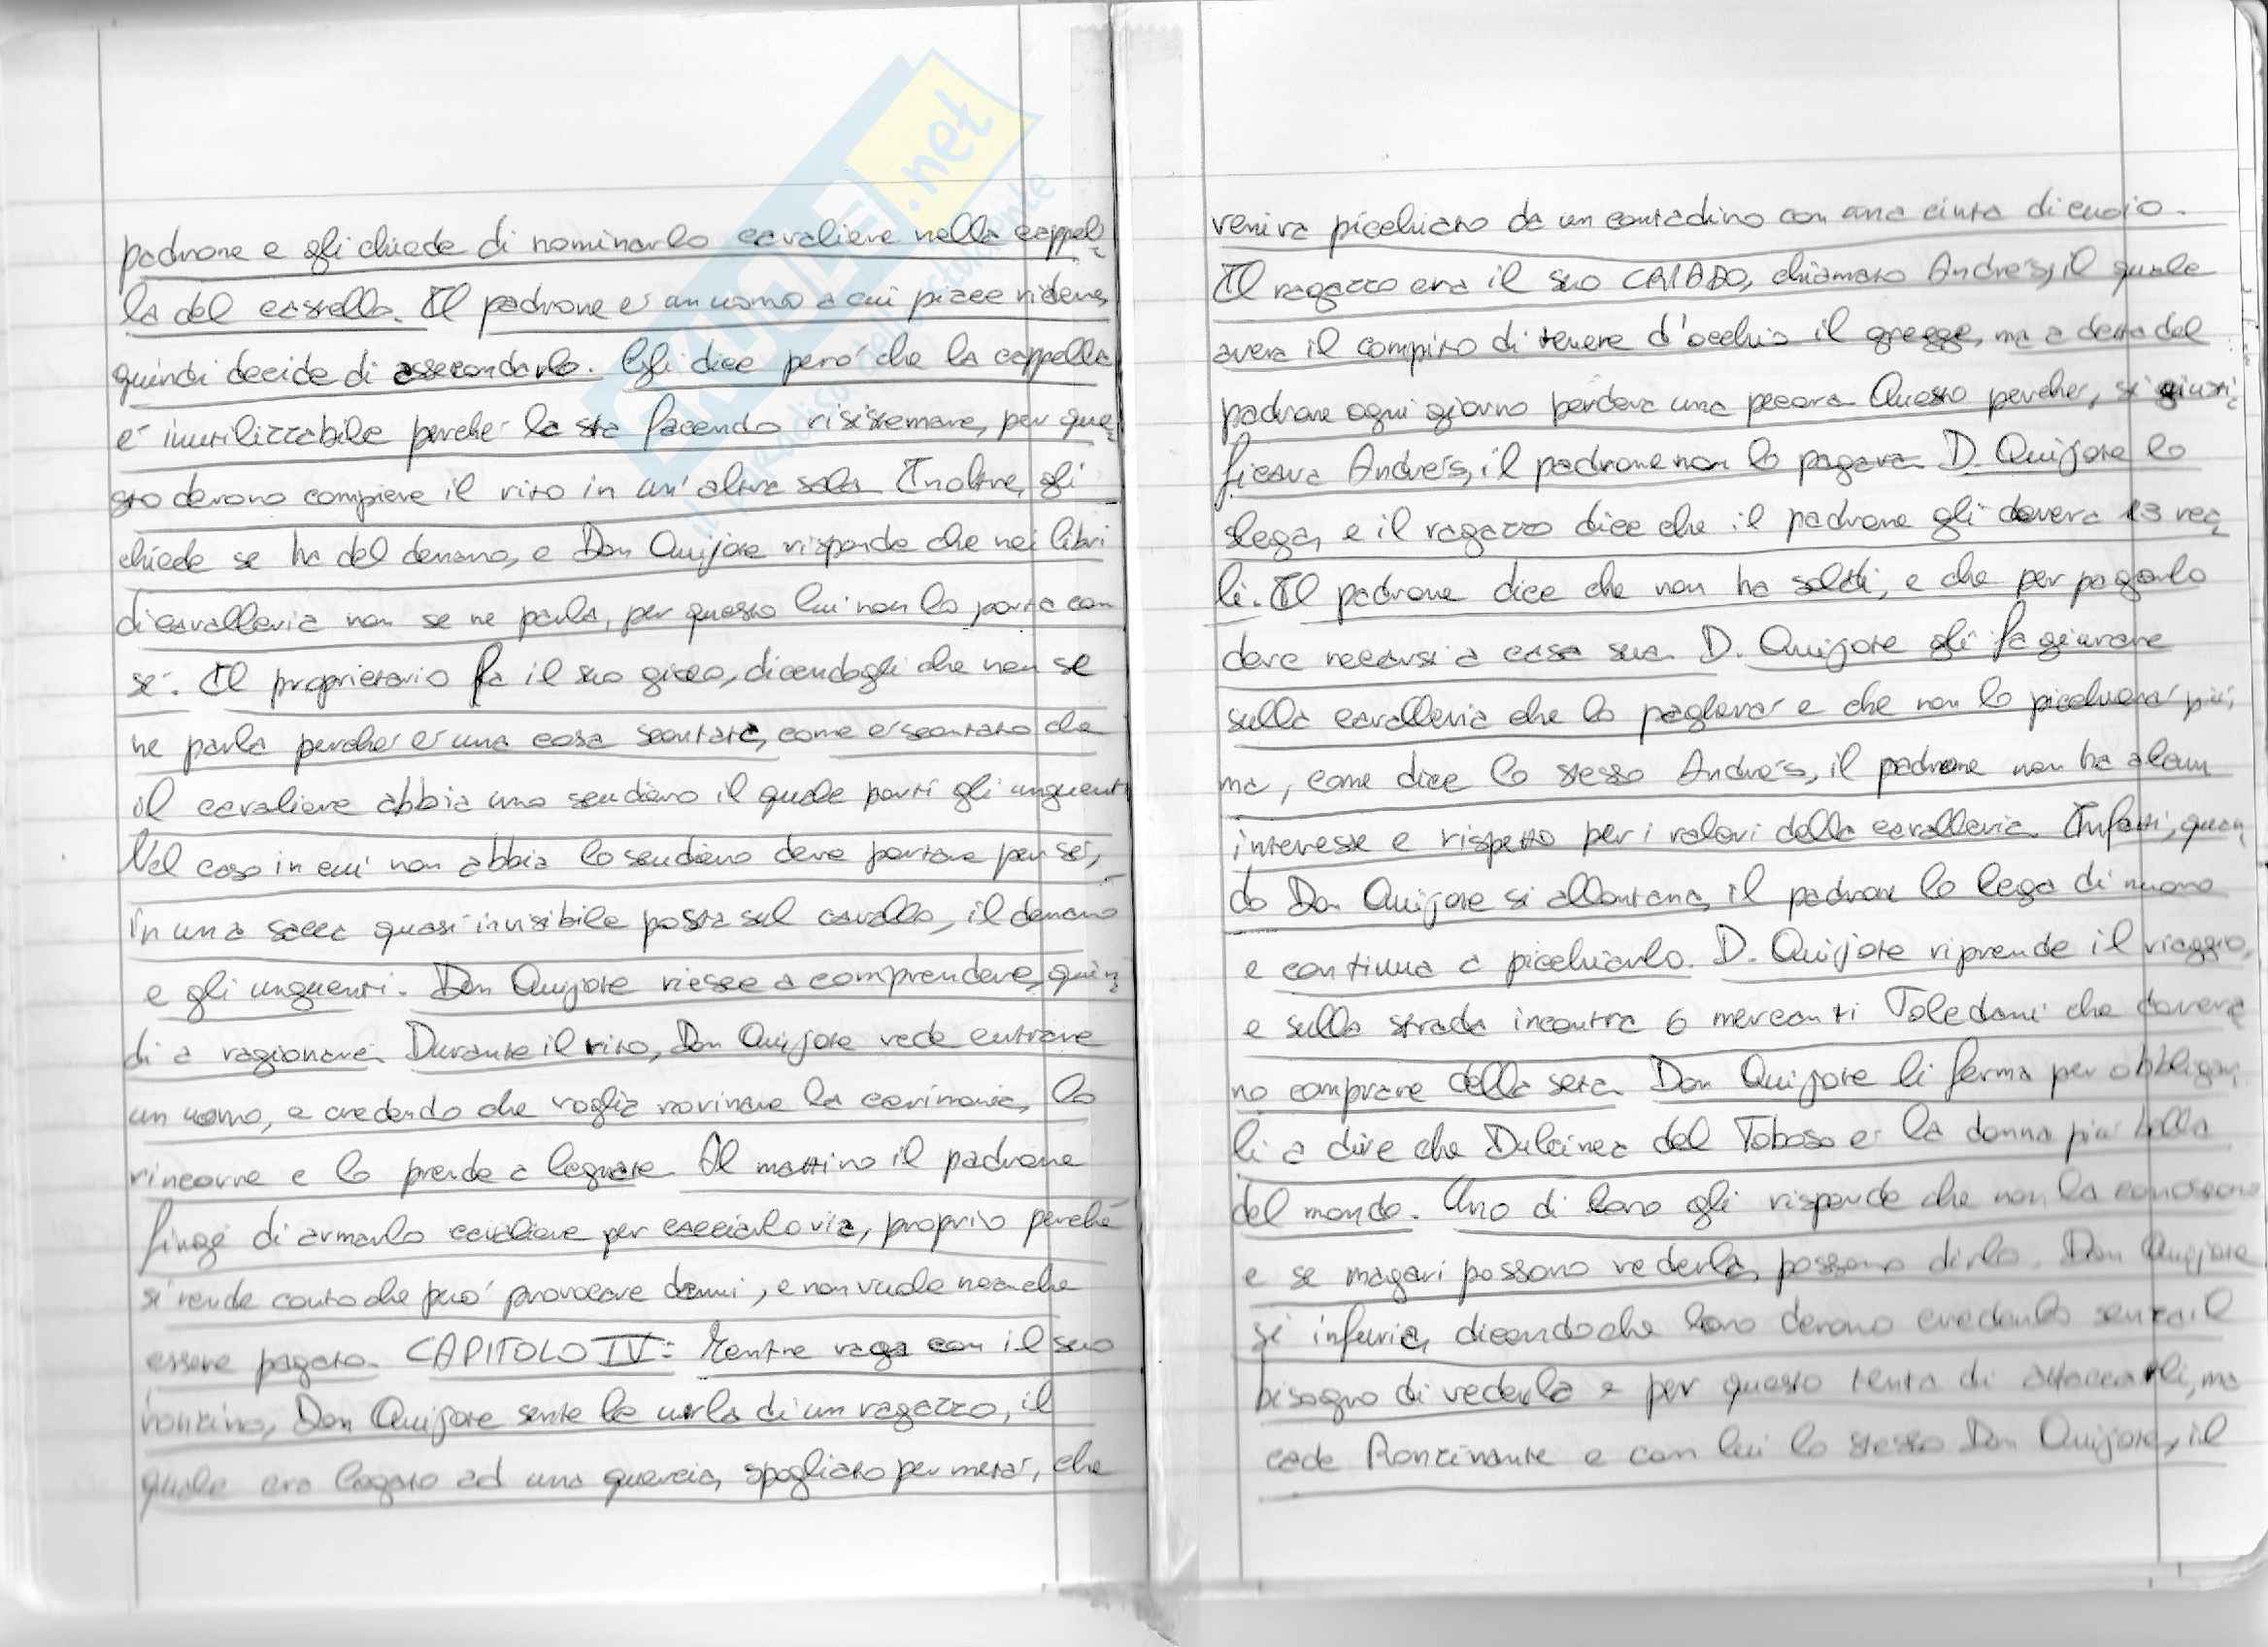 padrone e gli chiede di nominarlo cavaliere nella cappel-
la del castello. Il padrone e' un uomo a cui piace ridere,
quindi decide di assecondarlo. Gli dice pero' che la cappella
e' inutilizzabile perche' la sta facendo risistemare, per que-
sto devono compiere il rito in un'altra sala. Inoltre, gli
chiede se ha del denaro, e Don Quijote risponde che nei libri
di cavalleria non se ne parla, per questo lui non lo porta con
se'. Il proprietario fa il suo gioco, dicendogli che non se
ne parla perche' e' una cosa scontata, come e' scontato che
il cavaliere abbia uno scudiero il quale porti gli unguenti
Nel caso in cui non abbia lo scudiero deve portare per se',
in una sacca quasi invisibile posta sul cavallo, il denaro
e gli unguenti. Don Quijote riesce a comprendere, quin-
di a ragionare. Durante il rito, Don Quijote vede entrare
un uomo, e credendo che voglia rovinare la cerimonia, lo
rincorre e lo prende a legnate. Al mattino il padrone
finge di armarlo cavaliere per cacciarlo via, proprio perche'
si rende conto che puo' provocare danni, e non vuole neanche
essere pagato. CAPITOLO IV: Mentre vaga con il suo
ronzino, Don Quijote sente le urla di un ragazzo, il
quale era legato ad una quercia, spogliato per meta', che
veniva picchiato da un contadino con una cinta di cuoio.
Il ragazzo era il suo CRIADO, chiamato Andre's, il quale
aveva il compito di tenere d'occhio il gregge, ma a detta del
padrone ogni giorno perdeva una pecora. Questo perche', si giusti-
ficava Andre's, il padrone non lo pagava. D. Quijote lo
slega, e il ragazzo dice che il padrone gli doveva 13 rea-
li. Il padrone dice che non ha soldi, e che per pagarlo
deve recarsi a casa sua. D. Quijote gli fa giurare
sulla cavalleria che lo paghera' e che non lo picchiera' piu',
ma, come dice lo stesso Andre's, il padrone non ha alcun
interesse e rispetto per i valori della cavalleria. Infatti, quan-
do Don Quijote si allontana, il padrone lo lega di nuovo
e continua a picchiarlo. D. Quijote riprende il viaggio,
e sulla strada incontra 6 mercanti Toledani che doveva-
no comprare della seta. Don Quijote li ferma per obbligar-
li a dire che Dulcinea del Toboso e' la donna piu' bella
del mondo. Uno di loro gli risponde che non la conoscono
e se magari possono vederla, possono dirlo. Don Quijote
si infuria, dicendo che loro devono crederlo senza il
bisogno di vederla e per questo tenta di attaccarli, ma
cade Ronzinante e con lui lo stesso Don Quijote, il